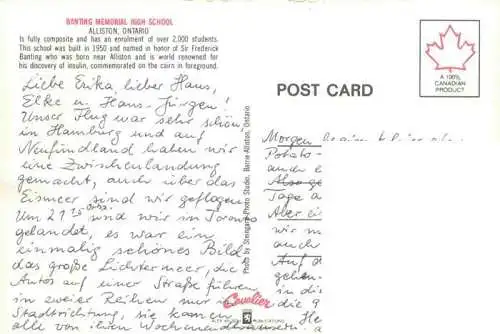 BANTING MEMORIAL HIGH SCHOOL
ALLISTON, ONTARIO
Is fully composite and has an enrolment of over 2,000 students.
This school was built in 1950 and named in honor of Sir Frederick
Banting who was born near Alliston and is world renowned for
his discovery of insulin, commemorated on the cairn in foreground.
Liebe Erika, lieber Hans,
Elke u. Hans-Jürgen!
Unser Flug war sehr schön
in Hamburg und auf
Neufundland haben wir
eine Zwischenlandung
gemacht, auch über das
Eismeer sind wir geflogen
Um 21 sind wir in Toronto
gelandet, es war ein
einmalig schönes Bild
das große Lichtermeer, die
Autos auf einer Straße führen
in zweier Reihen nur in
Stadtrichtung, sie kamen
alle von ihren Wochenendhäusern
POST CARD
A 100%
CANADIAN
PRODUCT
Photo by Stengard-Photo Studio, Barrie-Alliston, Ontario
Cavalier
Morgen
Potato-
auch
Also
Tage
Aber
wir
auch
Auf
gehen
in d
die g
He